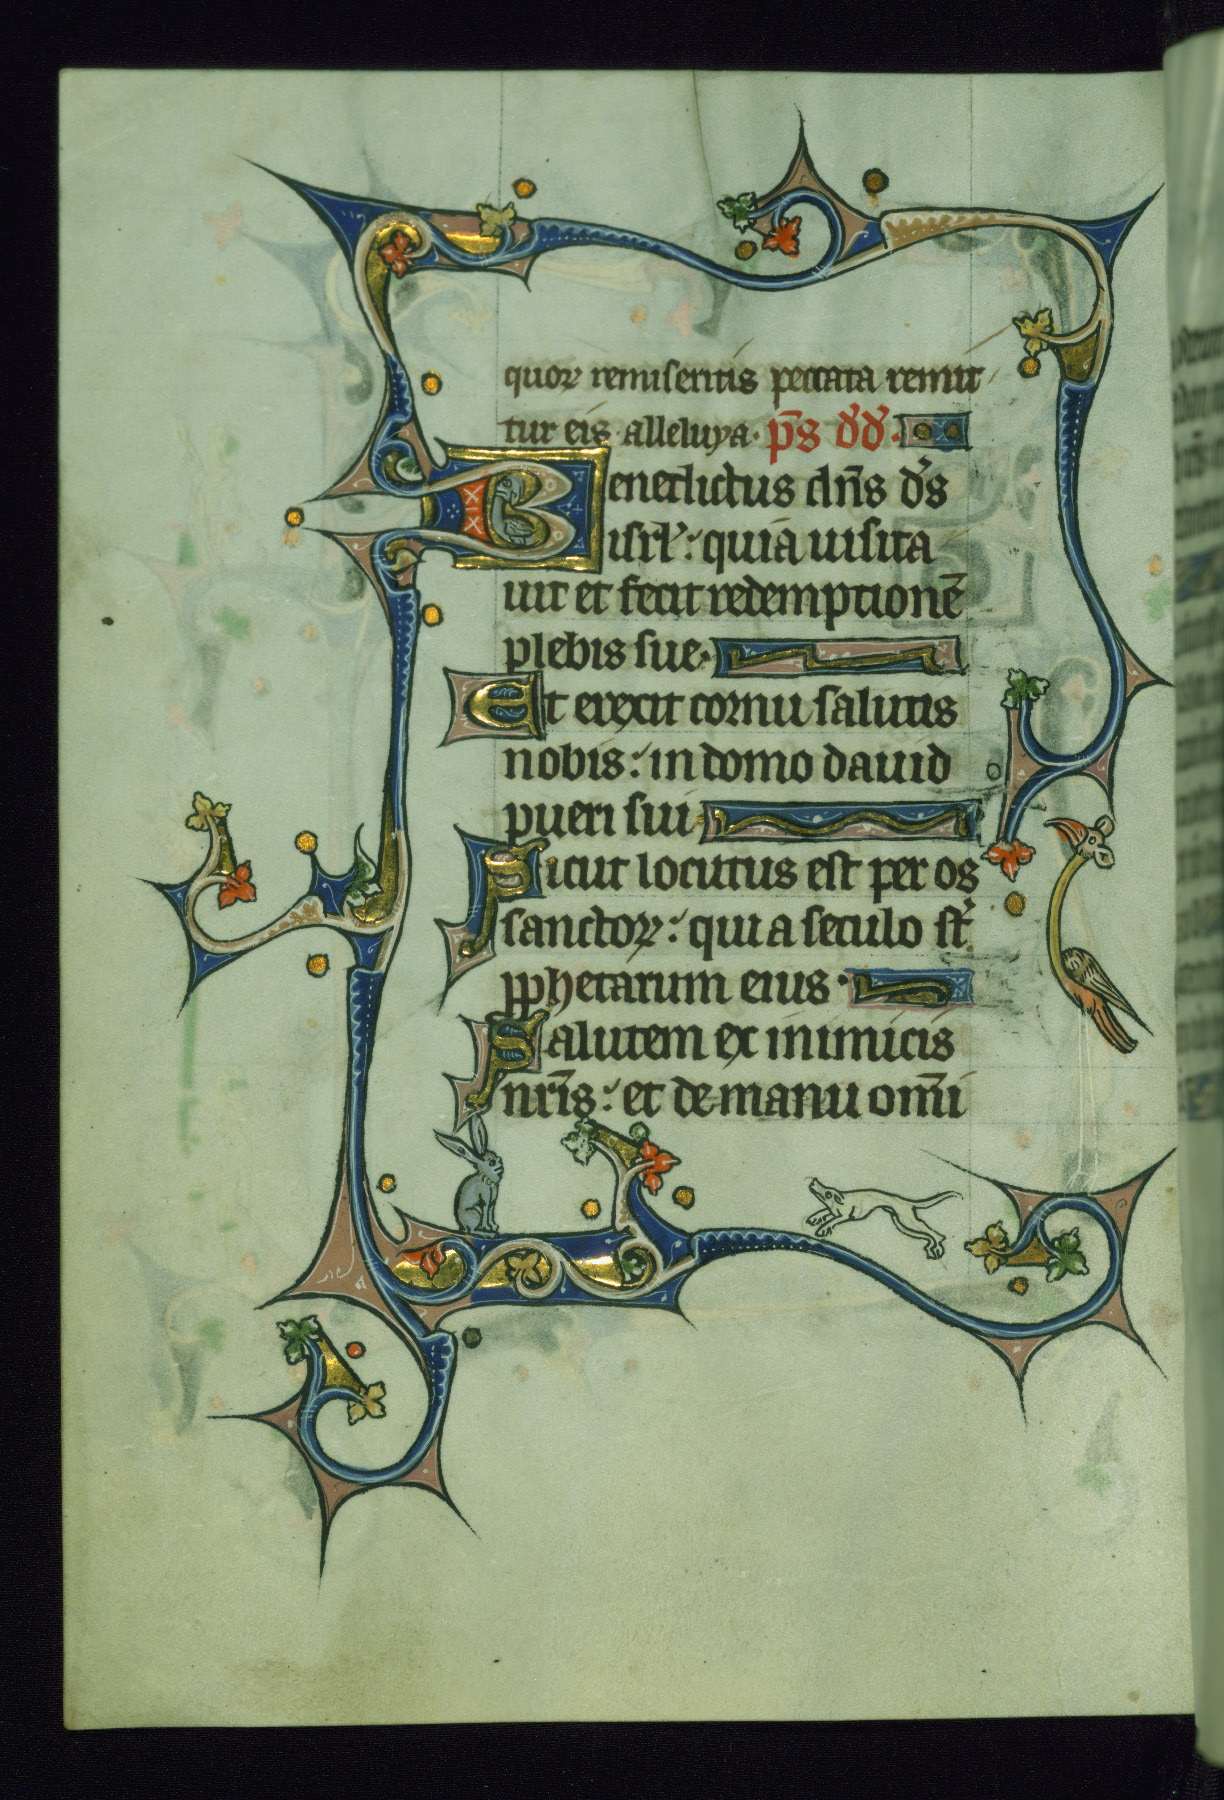 quoꝝ remiseritis peccata remit
tur eis alleluya. p̄s d'd'.
Benedictus dn̄s d's
isrl': quia uisita
uit et fecit redemptionē
plebis sue.
Et erexit cornu salutis
nobis: in domo dauid
pueri sui.
Sicut locutus est per os
sanctoꝝ: qui a seculo st'
pphetarum eius.
Salutem ex inimicis
nr̄is: et de manu om̄i